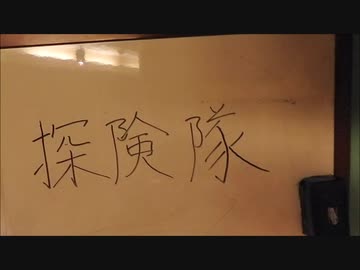 探険隊